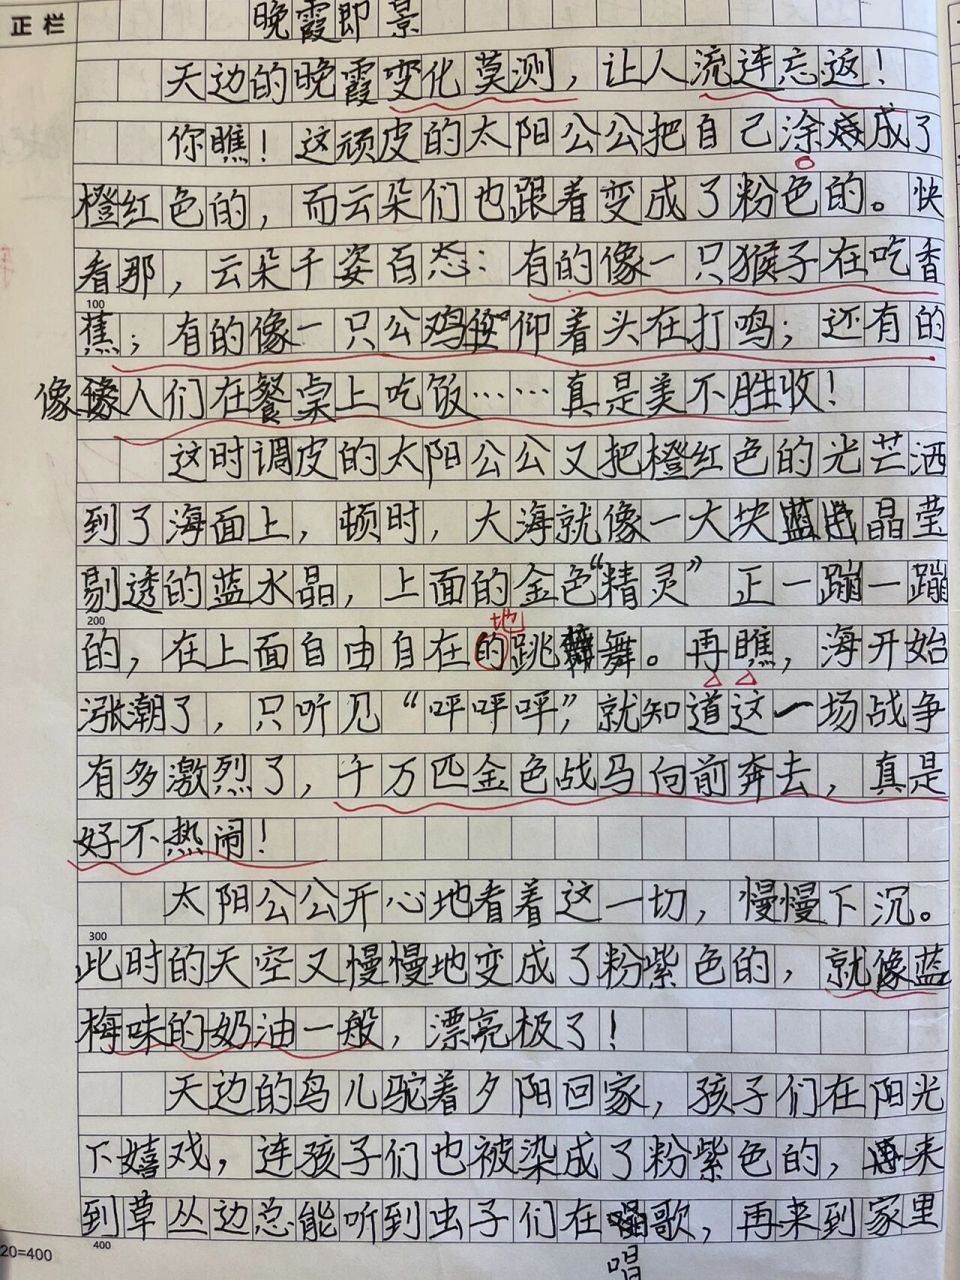 正栏
晚霞即景
天边的晚霞变化莫测，让人流连忘返！
你瞧！这顽皮的太阳公公把自己涂成了
橙红色的，而云朵们也跟着变成了粉色的。快
看那，云朵千姿百态：有的像一只猴子在吃香
100
蕉；有的像一只公鸡仰着头在打鸣；还有的
像人们在餐桌上吃饭……真是美不胜收！
这时调皮的太阳公公又把橙红色的光芒洒
到了海面上，顿时，大海就像一大块晶莹
剔透的蓝水晶，上面的金色“精灵”正一蹦一蹦
200
地
的，在上面自由自在的跳舞。再瞧，海开始
涨潮了，只听见“呯呯呯”，就知道这一场战争
有多激烈了，千万匹金色战马向前奔去，真是
好不热闹！
太阳公公开心地看着这一切，慢慢下沉。
300
此时的天空又慢慢地变成了粉紫色的，就像蓝
梅味的奶油一般，漂亮极了！
天边的鸟儿驼着夕阳回家，孩子们在阳光
下嬉戏，连孩子们也被染成了粉紫色的，再来
到草丛边总能听到虫子们在唱歌，再来到家里
20=400
400